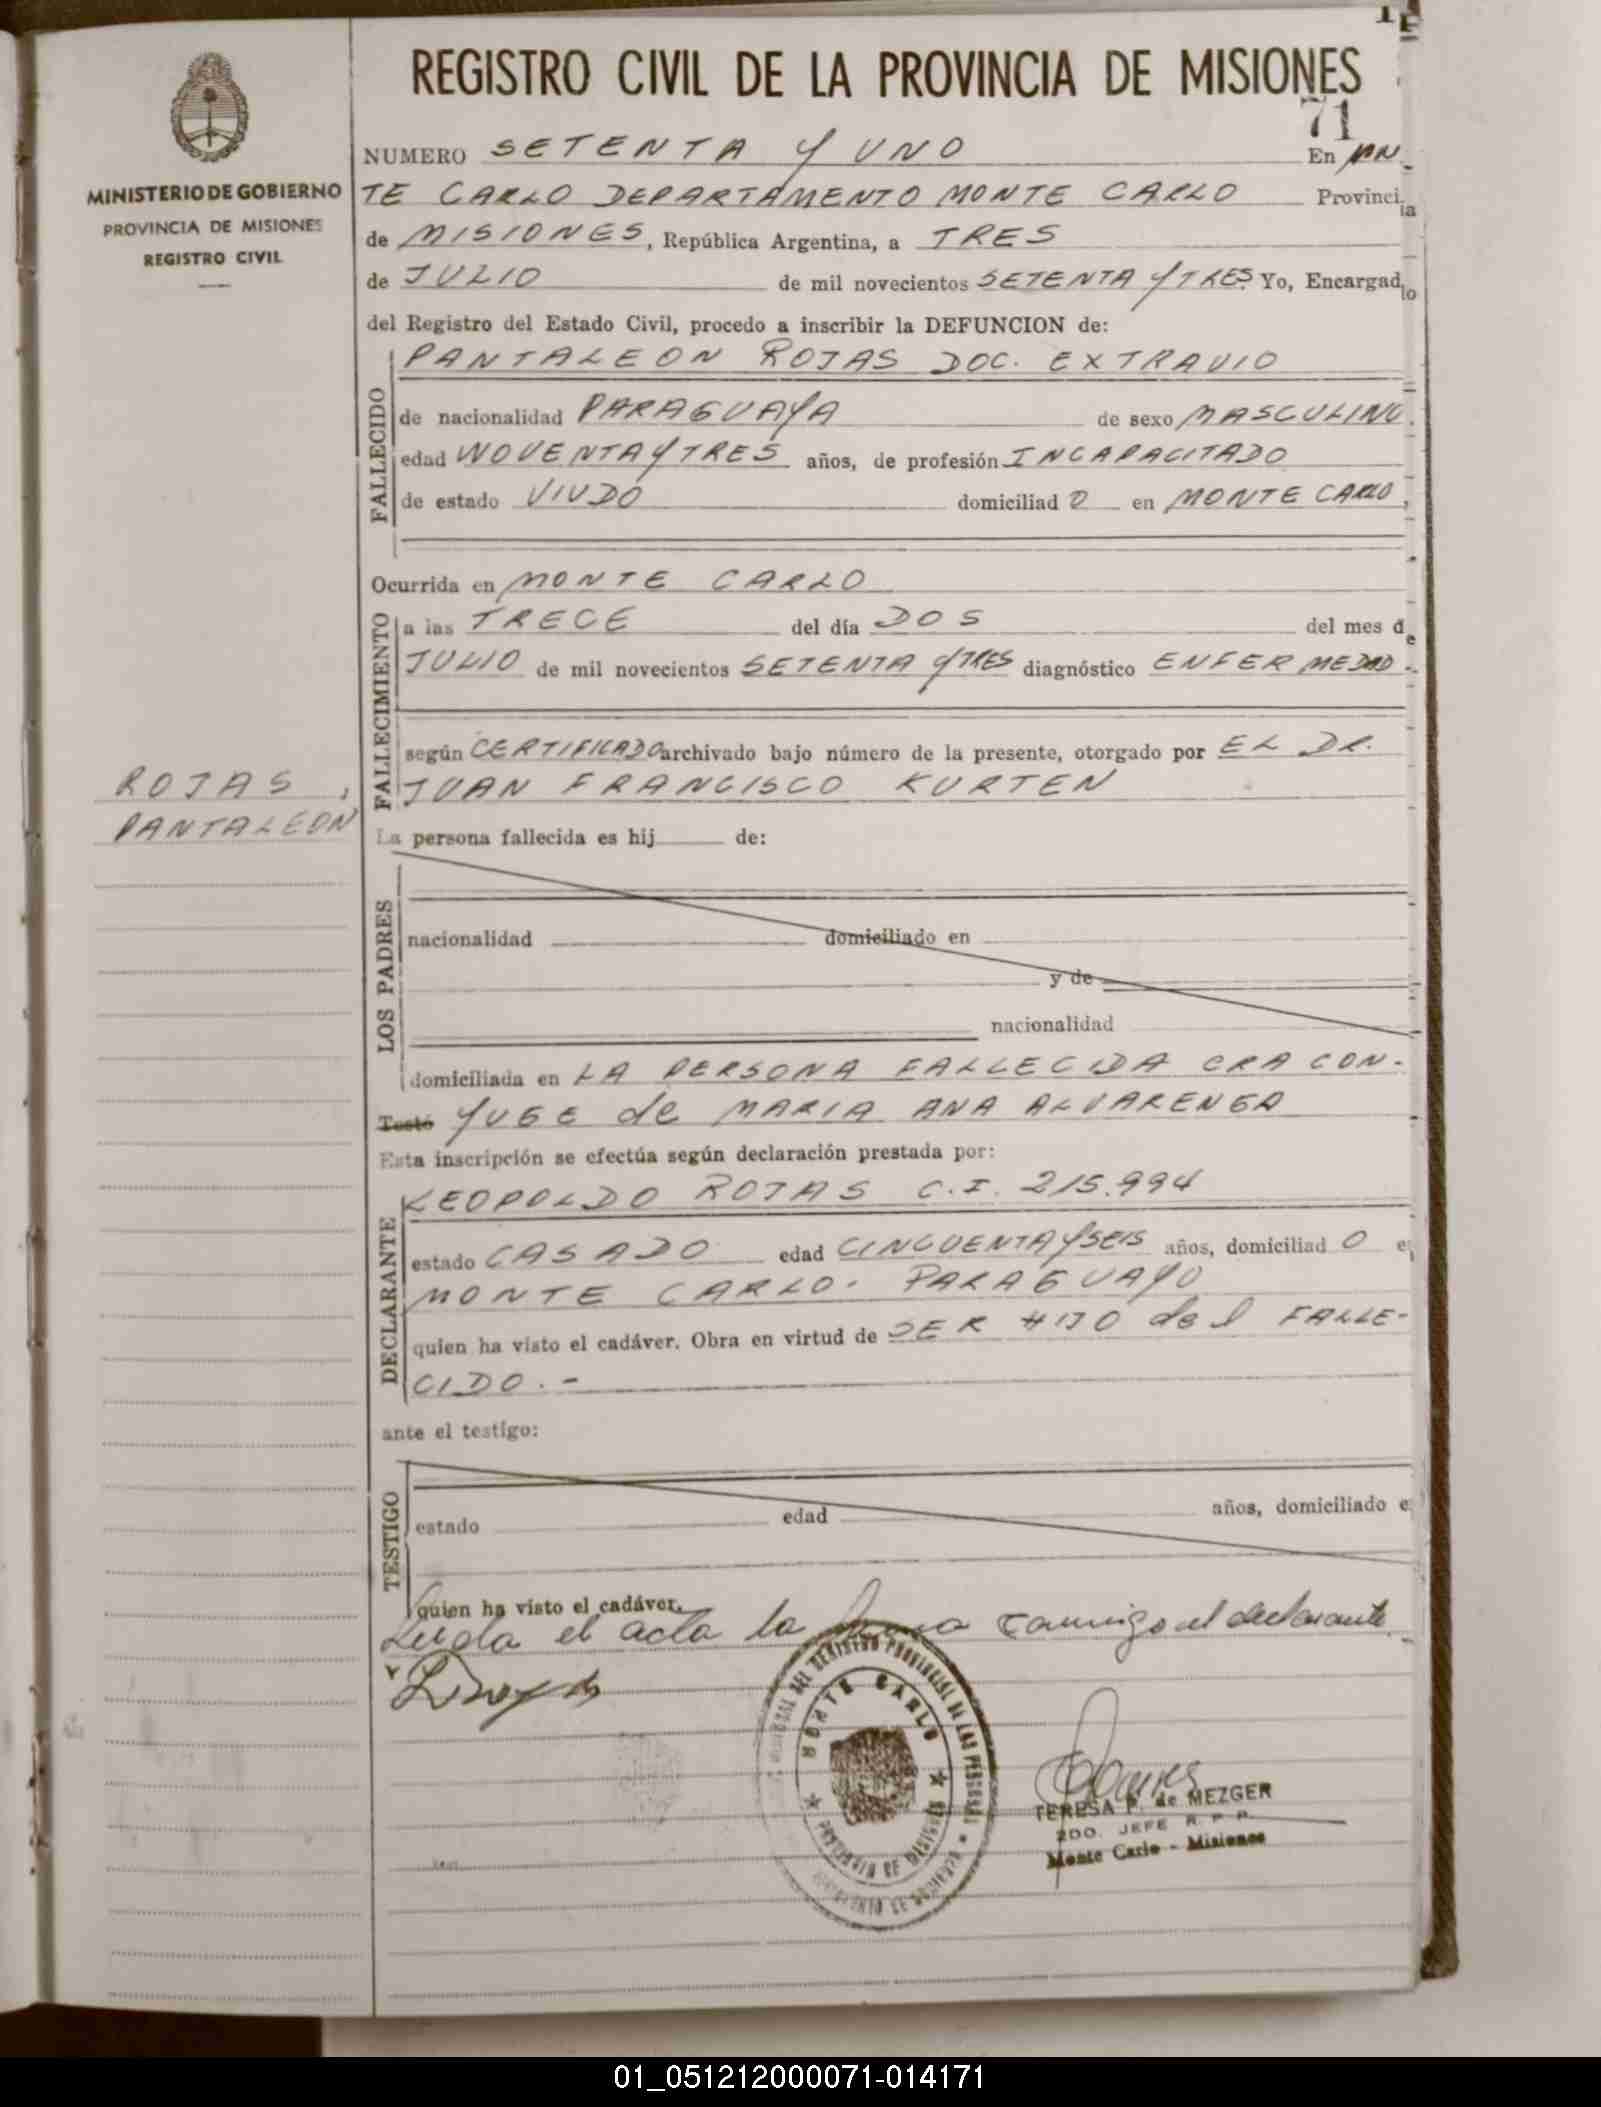 REGISTRO CIVIL DE LA PROVINCIA DE MISIONES
71
MINISTERIO DE GOBIERNO
PROVINCIA DE MISIONES
REGISTRO CIVIL
NUMERO SETENTA Y UNO En MON
TE CARLO DEPARTAMENTO MONTE CARLO Provincia
de MISIONES, República Argentina, a TRES
de JULIO de mil novecientos SETENTA Y TRES Yo, Encargado
del Registro del Estado Civil, procedo a inscribir la DEFUNCION de:
FALLECIDO
PANTALEON ROJAS DOC. EXTRAVIO
de nacionalidad PARAGUAYA de sexo MASCULINO.
edad NOVENTA Y TRES años, de profesión INCAPACITADO
de estado VIUDO domiciliad O en MONTE CARLO,
Ocurrida en MONTE CARLO
FALLECIMIENTO
a las TRECE del día DOS del mes de
JULIO de mil novecientos SETENTA Y TRES diagnóstico ENFERMEDAD.
según CERTIFICADO archivado bajo número de la presente, otorgado por EL DR.
JUAN FRANCISCO KURTEN
ROJAS,
PANTALEON
La persona fallecida es hij de:
LOS PADRES
nacionalidad domiciliado en
y de
nacionalidad
domiciliada en LA PERSONA FALLECIDA ERA CON-
Testó YUGE de MARIA ANA ALVARENGA
Esta inscripción se efectúa según declaración prestada por:
DECLARANTE
LEOPOLDO ROJAS C.I. 215.994
estado CASADO edad CINCUENTA Y SEIS años, domiciliad O e
MONTE CARLO. PARAGUAYO
quien ha visto el cadáver. Obra en virtud de SER HIJO del FALLE-
CIDO.-
ante el testigo:
TESTIGO
estado edad años, domiciliado e
quien ha visto el cadáver.
Leida el acta la firma conmigo el declarante.
MONTE CARLO
PROVINCIA DE MISIONES
TERESA P. de MEZGER
2DO. JEFE R. P. P.
Monte Carlo - Misiones
01_051212000071-014171